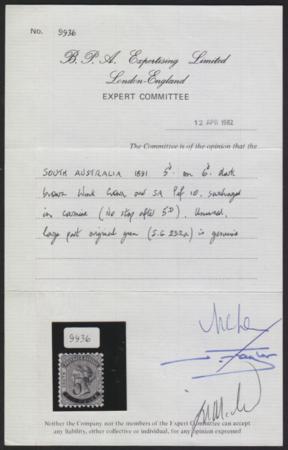 No. 9936
B. P. A. Expertising Limited
London-England
EXPERT COMMITTEE
12 APR 1982
The Committee is of the opinion that the
SOUTH AUSTRALIA 1891 5d on 6d dark
brown Wmk Crown and SA Perf 10, surcharged
in carmine (No stop after 5D), Unused,
large part original gum (S.G 232a) is genuine
9936
Neither the Company nor the members of the Expert Committee can accept
any liability, either collective or individual, for any opinion expressed